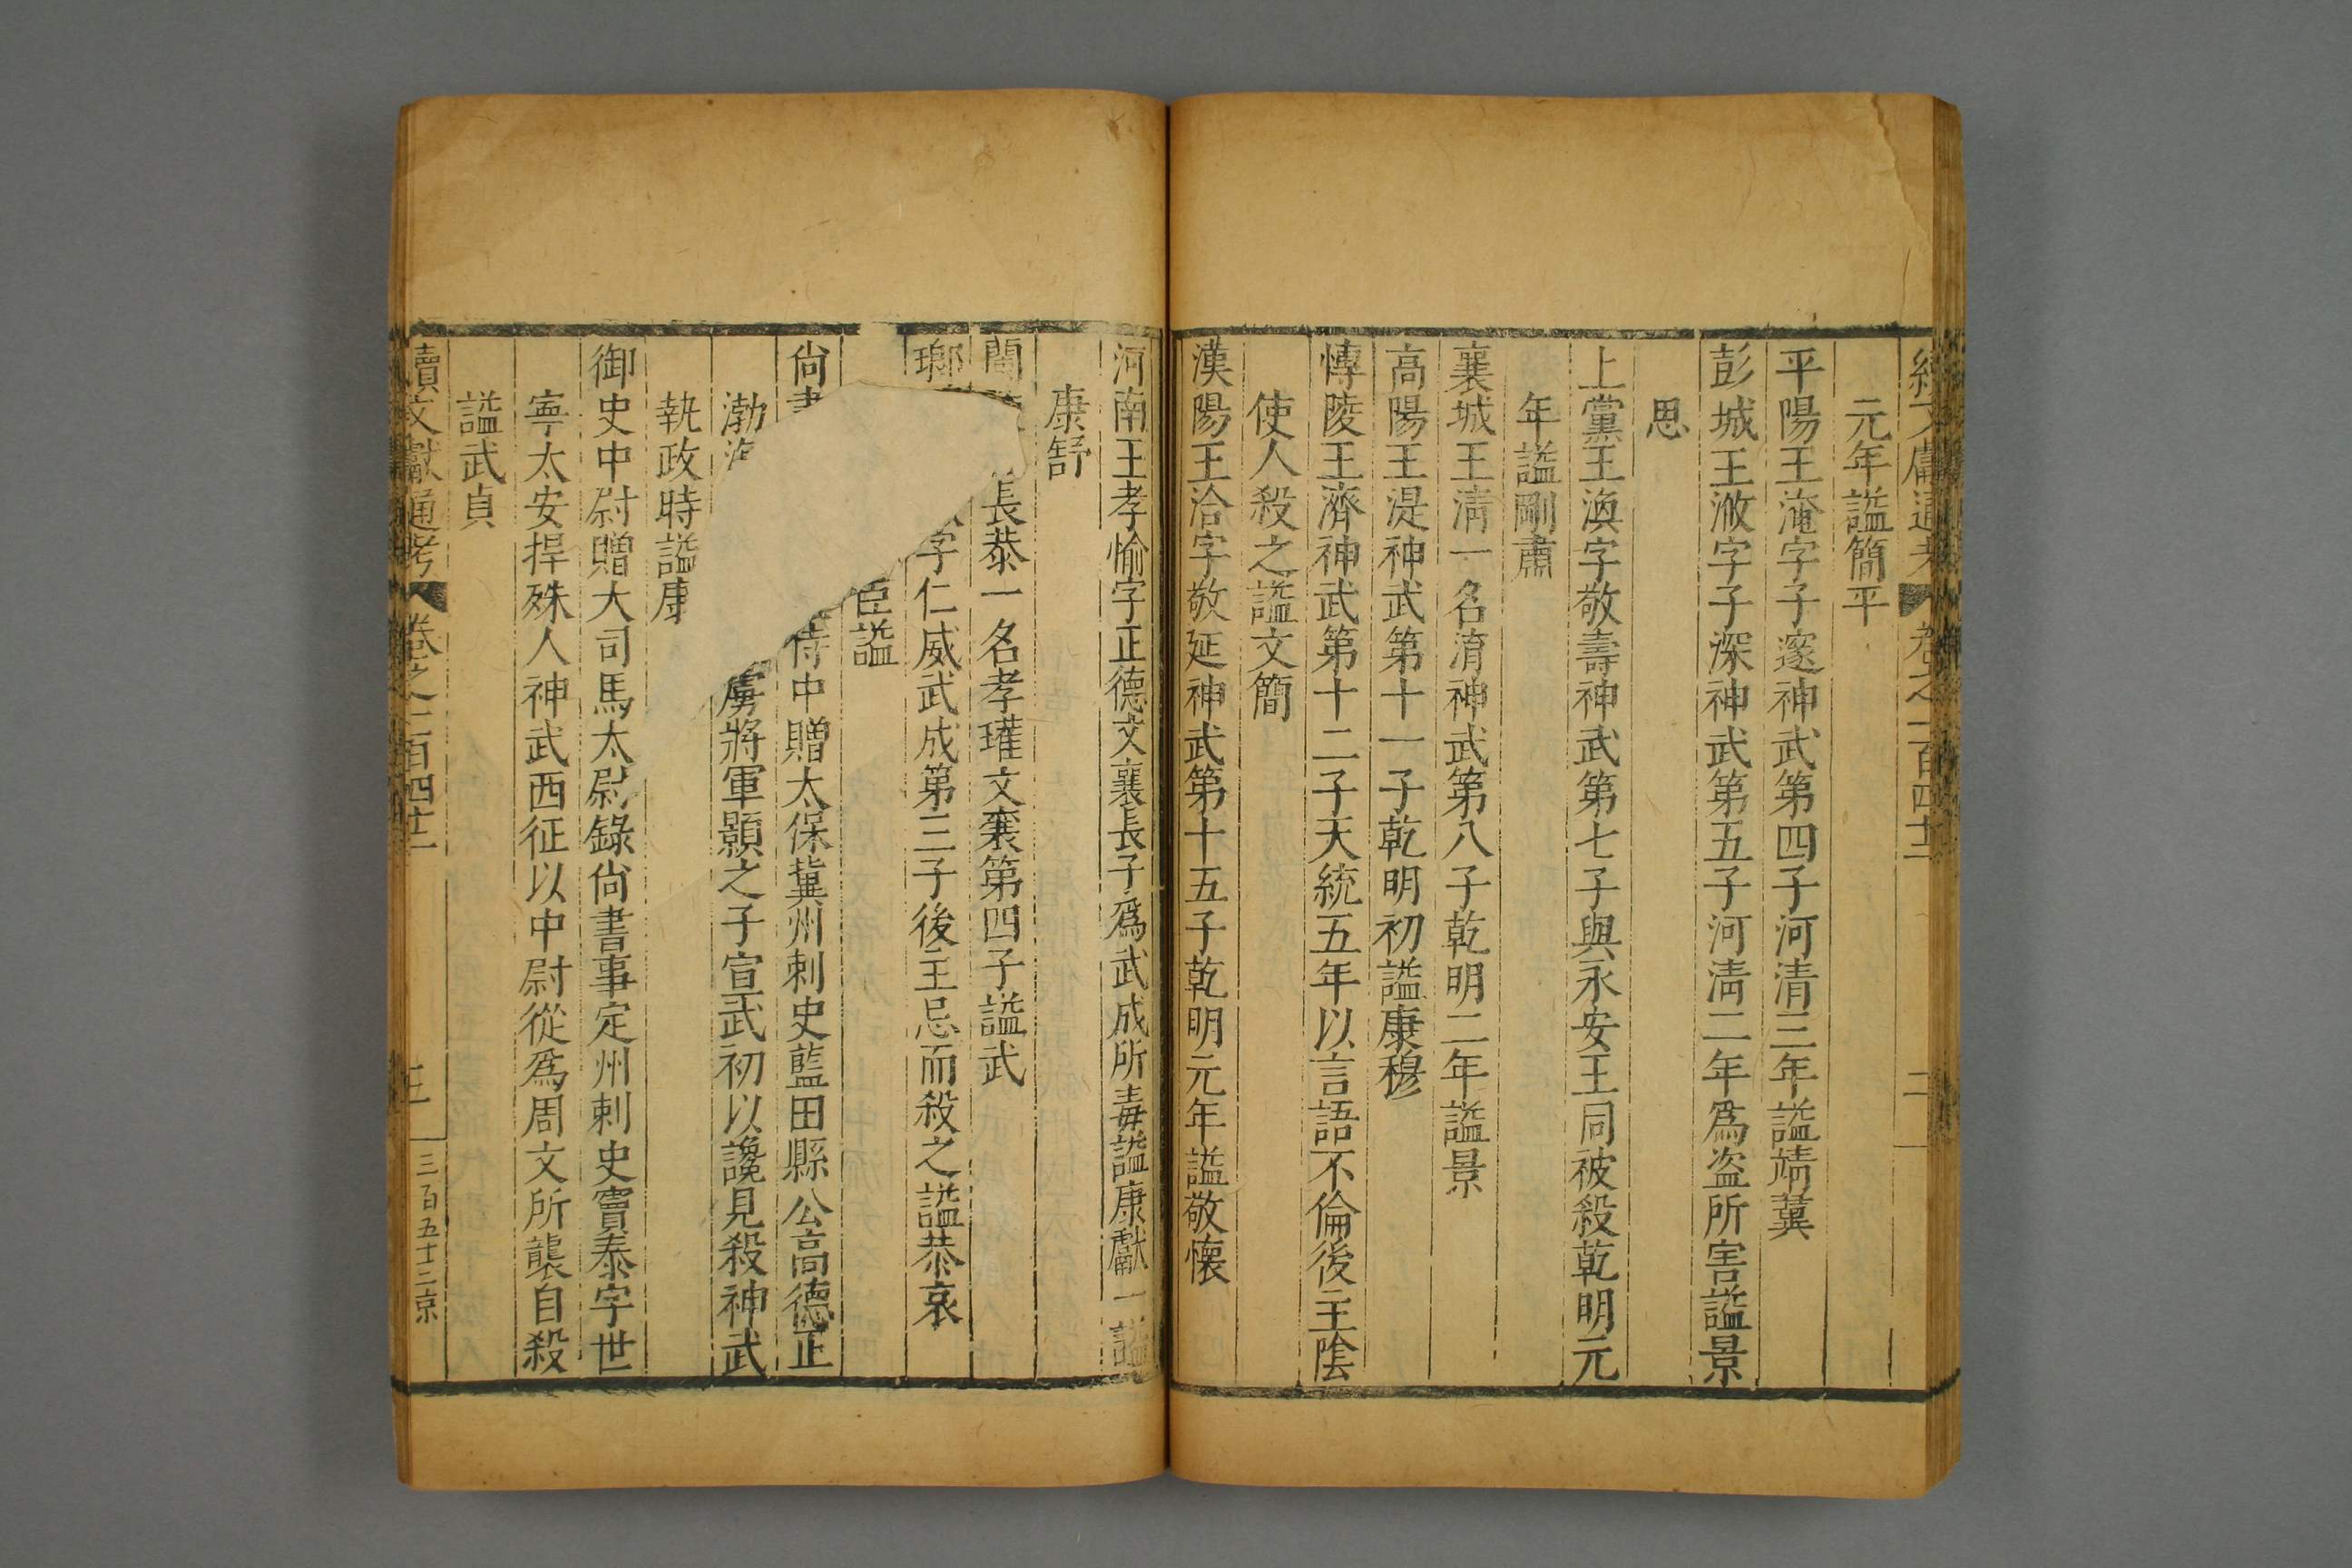 續文獻通考 卷之一百四十二 二
元年諡簡平
平陽王淹字子邃神武第四子河清三年諡靖冀
彭城王浟字子深神武第五子河清二年為盗所害諡景
思
上黨王渙字敬壽神武第七子與永安王同被殺乾明元
年諡剛肅
襄城王淯一名淯神武第八子乾明二年諡景
高陽王湜神武第十一子乾明初諡康穆
愽陵王濟神武第十二子天統五年以言語不倫後主陰
使人殺之諡文簡
漢陽王洽字敬延神武第十五子乾明元年諡敬懷
河南王孝愉字正德文襄長子為武成所毒諡康獻一諡
康舒
長恭一名孝瓘文襄第四子諡武
瑯 字仁威武成第三子後主忌而殺之諡恭哀
臣諡
尚書 侍中贈太保冀州刺史藍田縣公高德正
渤海 虜將軍顥之子宣武初以讒見殺神武
執政時諡康
御史中尉贈大司馬太尉錄尚書事定州刺史竇泰字世
寧太安捍殊人神武西征以中尉從為周文所襲自殺
諡武貞
續文獻通考 卷之一百四十二 三 三百五十三 京